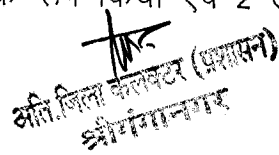 एवं 2
अति.जिला कलक्टर (प्रशासन)
श्रीगंगानगर